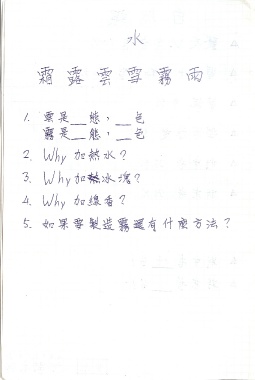 水
霜露雲雪霧雨
1. 雲是__態，__色
霧是__態，__色
2. Why 加熱水？
3. Why 加冰塊？
4. Why 加線香？
5. 如果要製造霧還有什麼方法？